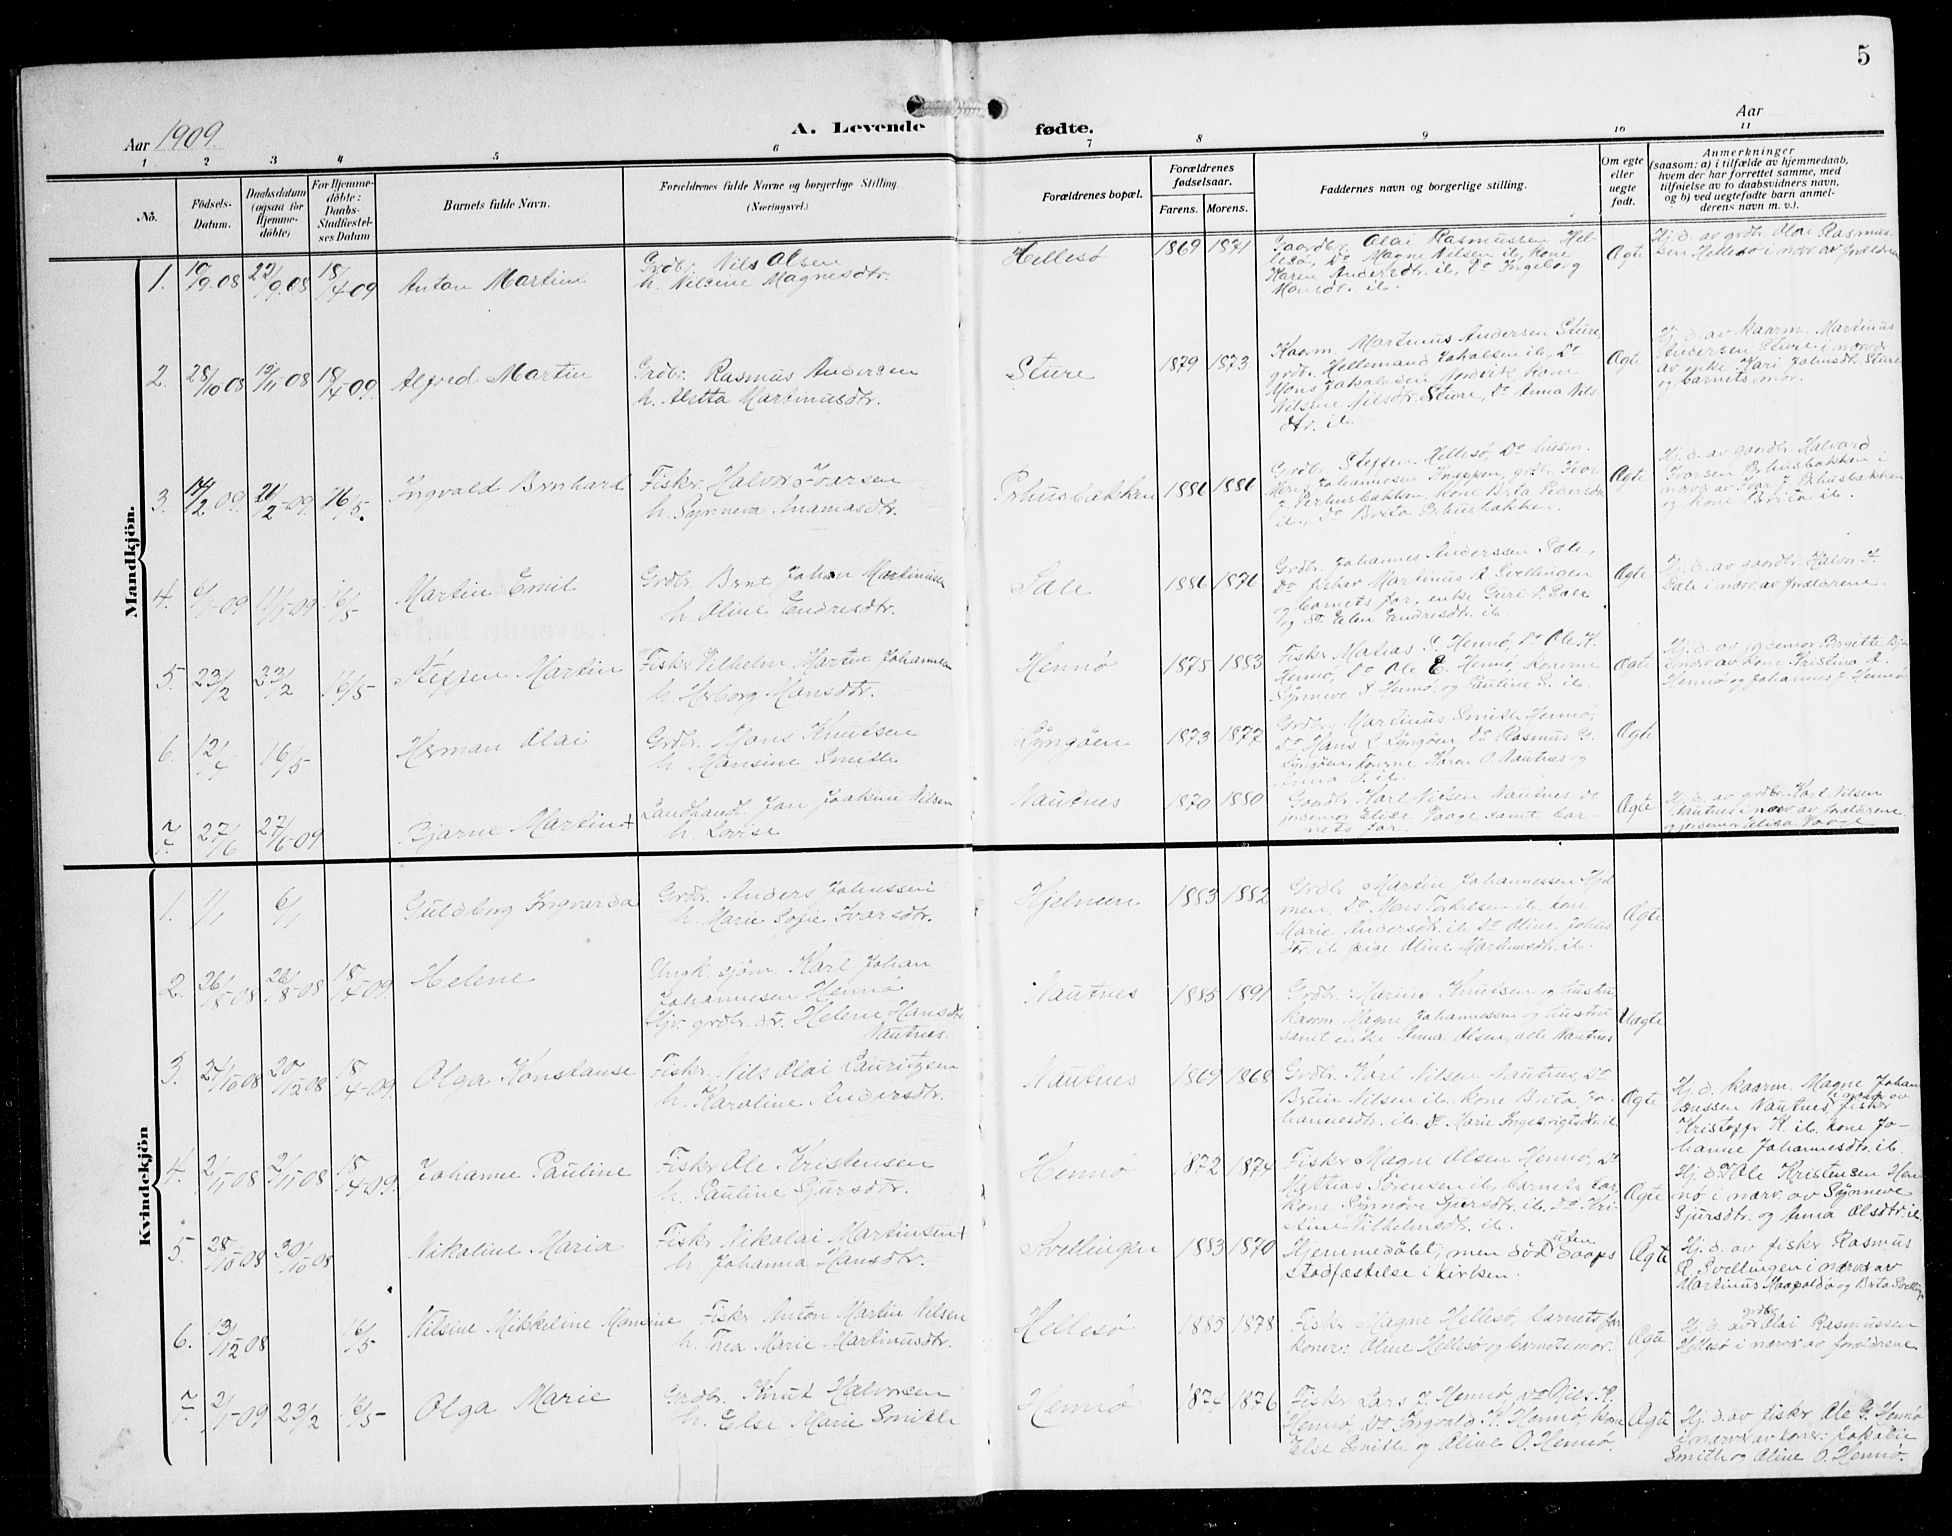 5
Aar 1909.
A. Levende fødte.
Aar
1 2 3 4 5 6 7 8 9 10 11
No.
Fødsels-
Datum.
Daabsdatum
(ogsaa for
Hjemme-
döbte)
For Hjemme-
döbte:
Daabs-
Stadfæstel-
ses Datum
Barnets fulde Navn.
Forældrenes fulde Navne og borgerlige Stilling.
(Næringsvei.)
Forældrenes bopæl.
Forældrenes
fødselsaar.
Farens. Morens.
Faddernes navn og borgerlige stilling.
Om egte
eller
uegte
født.
Anmerkninger
(saasom: a) i tilfælde av hjemmedaab,
hvem der har forrettet samme, med
tilføielse av to daabsvidners navn,
og b) ved uegtefødte barn anmel-
derens navn m. v.).
Mandkjön.
1. 10/9.08 22/9.08 18/4-09 Anton Martin
Grdbr. Nils Olsen
h. Nilsine Magnesdtr.
Hellesø 1869 1871
Gaardbr. Olai Rasmussen Hel-
lesø, Do Magne Nilsen ib, Kone
Karen Andersdtr. ib, Do Ingeborg
Monsdtr. ib.
Ægte
Hj. d. av grdbr. Ole Rasmus-
sen Hellesø i nærv. av forældrene
2. 28/10 08 13/11 08 18/4-09. Alfred Martin
Grdbr. Rasmus Andersen
h. Aletta Martinusdtr.
Sture 1879 1873
Kaarm. Martinus Andersen Sture,
grdbr. Hellemand Jakobsen ib, Do
Mons Jakobsen Nordvik, Kone
Nilsine Nilsdtr. Sture, Do Anna Nils-
dtr. ib.
Ægte
Hj. d. av kaarm. Martinus
Andersen Sture i nærvær
av enke Kari Johnsdtr. Sture
og barnets mor.
3. 14/2 09 21/2-09 16/5. Ingvald Bernhard
Fisker Halvor Ivarsen
h. Synneva Anamasdtr.
Perhusbakken 1886 1886
Grdbr. Steffen Hellesø, Do husm.
Mons Johannesen, grdbr. Ivar
J. Perhusbakken, Kone Brita Pedersdtr.
ib., Do Brita Perhusbakken.
Ægte
Hj. d. av gaardbr. Halvard
Ivarsen Perhusbakken i
nærv. av Ivar J. Perhusbakken
og Kone Brita ib.
4. 6/1-09. 11/1-09 16/5 Martin Emil
Grdbr. Brnt Johan Martinusen
h. Oline Endresdtr.
Sæle 1886 1876
Grdbr. Johannes Anderssen Sæle,
Do fisker Martinus A Svellingen
og barnets far, enke Guri P. Sæle
og Do Elen Endresdtr. ib.
Ægte
Hj. d. av gaardbr. Halvor J.
Sæle i nærv. av forældrene.
5. 23/2 23/2 16/5 Steffen Martin
Fisker Vilhelm Martin Johannesen
h. Herborg Mansdtr.
Hennø 1875 1883
Fisker Matias S. Hennø, Do Ole K.
Hennø, Do Ole E. Hennø, Konerne
Synneve S Hennø, og Pauline S. ib.
Ægte
Hj. d. av jordemor Brgitte
i nærv. av Kone Kristina A.
Hennø og Johannes J. Hennø
6. 12/4 16/5 Herman Olai
Grdbr. Mons Knutsen
h. Mansine Smith
Lyngøen 1873 1877
Grdbr. Martinus Smith Hennø,
Do Hans L. Lyngøen, Do Rasmus
Lyngøen, Konerne Karen O. Nautnes og
Anna ib.
Ægte
7. 27/6 27/6-09 Bjarne Martin+
Landhandl. Jan Joakim Nilsen
h. Lovise
Nautnes 1870 1880
Gaardbr. Karl Nilsen Nautnes do
jordemor Elise Vaage samt bar-
nets far.
Ægte
Hj. d. av grdbr. Karl Nilsen
Nautnes i nærv. av forældrene
og jordemor Elisa Vaage
Kvindekjön
1. 1/1 6/1 Guldborg Ingverda
Grdbr. Anders Johnssen
h. Marie Sofie Ivarsdtr.
Hjelmen 1883 1882
Grdbr. Martin Johannessen Hjel-
men, Do Mons Torkelsen ib, Kone
Marie Andersdtr. ib, Do Oline Johns-
dtr. ib, pige Oline Martinusdtr. ib.
Ægte
2. 26/8-08 26/8-08 18/4-09. Helene
Ungk. sjøm. Karl Johan
Johannesen Hennø
Hjv. grdbr. dtr. Helene Hansdtr.
Nautnes.
Nautnes 1885 1891
Grdbr. Marius Knutsen og hustru
kaarm. Magne Johannessen og hustru
samt enke Anna Olsen, alle Nautnes
Uægte
3. 21/10 08 20/12 08 18/4-09. Olga Konstanse
Fisker Nils Olai Lauritzen
h. Karoline Andersdtr.
Nautnes 1869 1868
Grdbr. Karl Nilsen Nautnes, Do
Nilsen ib, Kone Brita Jo-
hannesdtr. ib, Do Marie Ingebrigtsdtr. ib
Ægte
Hj. d. kaarm. Magne Johan-
nessen Nautnes i nærvær av fisker
Kristoffr K. ib. Kone Jo-
hanne Johannesdtr. ib.
4. 2/11 08 2/11 08 18/4-09. Johanne Pauline
Fisker Ole Kristensen
h. Pauline Sjursdtr.
Hennø 1872 1874
Fisker Magne Olsen Hennø, Do
Mathias Sørensen ib, barnets far,
Kone Synnøve Sjursdtr. ib, Do Kri-
stine Vilhelmsdtr. ib.
Ægte
Hj. d. Ole Kristensen Hen-
nø i nærv. av Synneve
Sjursdtr. og Anna Olsdtr. ib.
5. 28/10 08 30/10 08 Nikoline Maria
Fisker Nikolai Martinsen+
h. Johanna Hansdtr.
Svellingen 1883 1870
Hjemmedøbt, men død uten daaps
stadfæstelse i kirken.
Ægte
Hj. d. av fisker Rasmus
R. Svellingen i nærvær av
Martinus og Brta Svellingen
6. 13/12 08 16/5 Nilsine Mikkeline Monsine
Fisker Anton Martin Nilsen
h. Thea Marie Martinusdtr.
Hellesø 1885 1878
Fisker Magne Hellesø, barnets far
koner: Oline Hellesø og barnets mor.
Ægte
Hj. d. av grdbr. Olai Rasmussen
Hellesø i nærv. av forældrene
7. 2/1-09 23/2 16/5 Olga Marie
Grdbr. Knut Halvorsen
h. Else Marie Smith
Hennø 1874 1876
Fisker Lars J. Hennø, Do Nils K.
Hennø, Do Ingvald K. Hennø, Kone
Else Smith og Oline O. Hennø.
Ægte
Hj. d. av fisker Ole G. Hennø
i nærv. av koner: Jakobie
Smith og Oline O. Hennø.